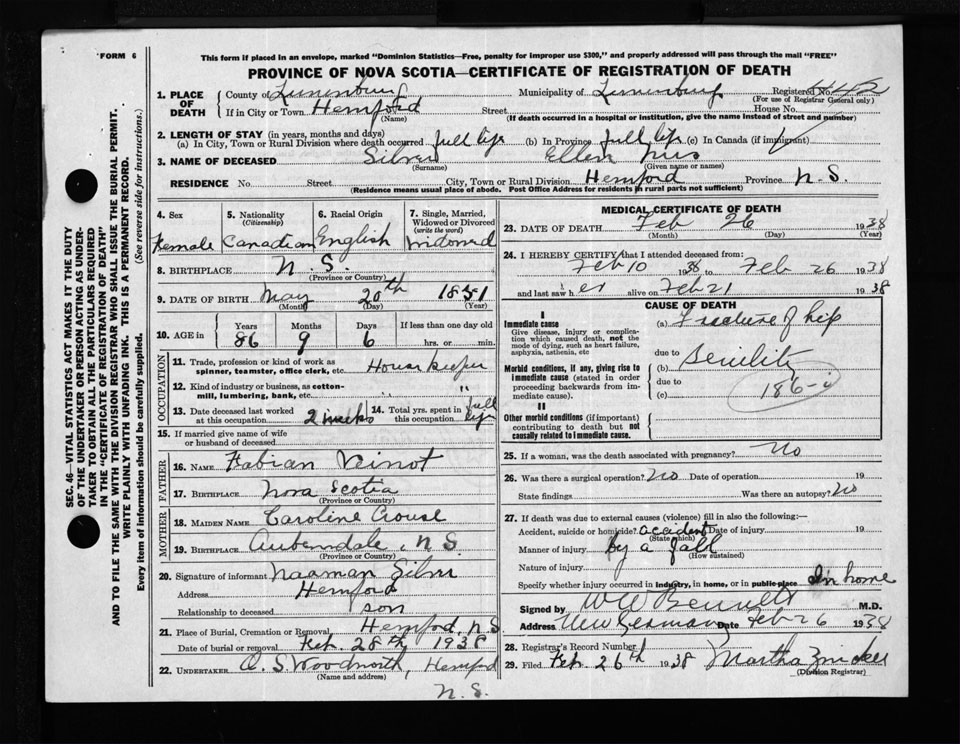 FORM 6
This form if placed in an envelope, marked "Dominion Statistics—Free, penalty for improper use $300," and properly addressed will pass through the mail "FREE"
PROVINCE OF NOVA SCOTIA—CERTIFICATE OF REGISTRATION OF DEATH
1. PLACE OF DEATH County of Lunenburg Municipality of Lunenburg Registered No.
(For use of Registrar General only)
If in City or Town Hemford Street House No.
(Name) (If death occurred in a hospital or institution, give the name instead of street and number)
2. LENGTH OF STAY (in years, months and days)
(a) In City, Town or Rural Division where death occurred full life (b) In Province full life (c) In Canada (if immigrant)
3. NAME OF DECEASED Silver Ellen
(Surname) (Given name or names)
RESIDENCE No. Street City, Town or Rural Division Hemford Province N.S.
(Residence means usual place of abode. Post Office Address for residents in rural parts not sufficient)
4. Sex 5. Nationality (Citizenship) 6. Racial Origin 7. Single, Married, Widowed or Divorced (write the word)
Female Canadian English widowed
8. BIRTHPLACE N.S.
(Province or Country)
9. DATE OF BIRTH May 20th 1851
(Month) (Day) (Year)
10. AGE in Years Months Days If less than one day old
86 9 6 hrs. or min.
OCCUPATION
11. Trade, profession or kind of work as spinner, teamster, office clerk, etc. House keeper
12. Kind of industry or business, as cotton-mill, lumbering, bank, etc. " "
13. Date deceased last worked at this occupation 2 weeks 14. Total yrs. spent in this occupation full life
15. If married give name of wife or husband of deceased
FATHER
16. NAME Fabian Veinot
17. BIRTHPLACE Nova Scotia
(Province or Country)
MOTHER
18. MAIDEN NAME Caroline Crouse
19. BIRTHPLACE Auberndale, N S
(Province or Country)
20. Signature of informant Naaman Silver
Address Hemford
Relationship to deceased son
21. Place of Burial, Cremation or Removal Hemford, N S
Date of burial or removal Feb. 28th 1938
22. UNDERTAKER O. S. Woodworth, Hemford
(Name and address)
N. S.
MEDICAL CERTIFICATE OF DEATH
23. DATE OF DEATH Feb 26 1938
(Month) (Day) (Year)
24. I HEREBY CERTIFY that I attended deceased from:
Feb 10 1938 to Feb 26 1938
and last saw her alive on Feb 21 1938
CAUSE OF DEATH
I
Immediate cause
Give disease, injury or complication which caused death, not the mode of dying, such as heart failure, asphyxia, asthenia, etc
(a) Fracture of hip
due to
Morbid conditions, if any, giving rise to immediate cause (stated in order proceeding backwards from immediate cause).
(b) Senility
due to
(c) 186-i
II
Other morbid conditions (if important) contributing to death but not causally related to immediate cause.
25. If a woman, was the death associated with pregnancy? No
26. Was there a surgical operation? No Date of operation 19
State findings Was there an autopsy? No
27. If death was due to external causes (violence) fill in also the following:—
Accident, suicide or homicide? accident Date of injury 19
(State which)
Manner of injury by a fall
(How sustained)
Nature of injury
Specify whether injury occurred in industry, in home, or in public place In home
Signed by W W Bennett M.D.
Address New Germany Date Feb 26 1938
28. Registrar's Record Number
29. Filed Feb. 26th 1938 Martha
(Division Registrar)
SEC. 46—VITAL STATISTICS ACT MAKES IT THE DUTY
OF THE UNDERTAKER OR PERSON ACTING AS UNDERTAKER
TO OBTAIN ALL THE PARTICULARS REQUIRED
IN THE "CERTIFICATE OF REGISTRATION OF DEATH"
AND TO FILE THE SAME WITH THE DIVISION REGISTRAR WHO SHALL ISSUE THE BURIAL PERMIT.
WRITE PLAINLY WITH UNFADING INK. THIS IS A PERMANENT RECORD.
Every item of information should be carefully supplied. (See reverse side for instructions.)